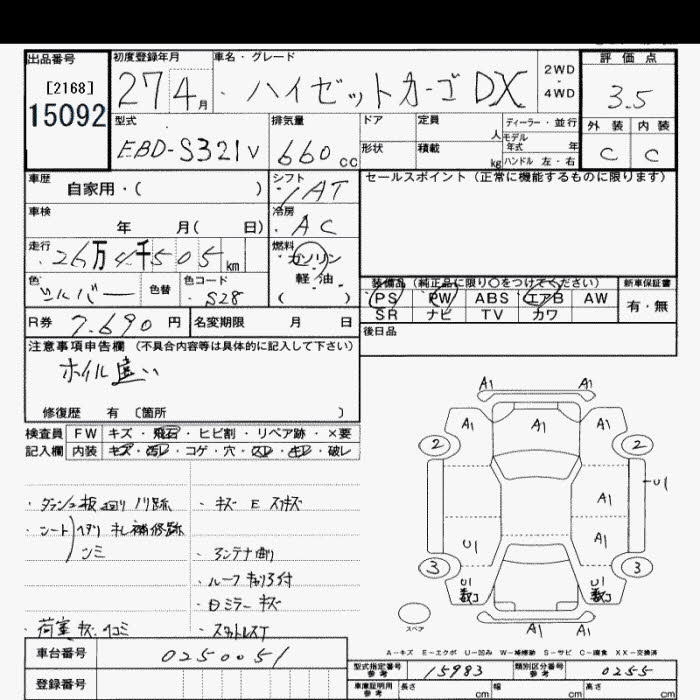 出品番号 初度登録年月 車名・グレード 評価点
[2168]
15092
27 4月 ハイゼットカーゴ DX 2WD・4WD 3.5
型式 排気量 ドア 定員 人 ディーラー・並行 外装 内装
EBD-S321V 660cc 形状 積載 kg モデル年式 年 C C
ハンドル 左・右
車歴 自家用・( ) シフト セールスポイント (正常に機能するものに限ります)
AT
車検 年 月( 日) 冷房
AC
走行 26万4千505km 燃料 ガソリン・軽油 ( )
色 シルバー 色替 色コード S28
装備品 (純正品に限り○をつけてください) 新車保証書
PS PW ABS エアB AW 有・無
SR ナビ TV カワ
R券 7.690円 名変期限 月 日
後日品
注意事項申告欄 (不具合内容等は具体的に記入して下さい)
ホイル違い
修復歴 有 〔箇所 〕
検査員 FW キズ・飛石・ヒビ割・リペア跡・×要
記入欄 内装 キズ・汚レ・コゲ・穴・スレ・キレ・破レ
A1 A1
A1 A1 A1
2 2
U1
A1
U1 A1
3 3
U1 U1
数コ 数コ
スペア
A1 A1
・キズ E
・シート ヘタリ キレ補修跡
・シミ
・アンテナ曲り
・ルーフ キャリア付
・Dミラー キズ
・荷室 キズ ヘコミ ・スタットレスT
A-キズ E-エクボ U-凹み W-補修跡 S-サビ C-腐食 XX-交換済
車台番号 0250051 型式指定番号 参考 15983 類別区分番号 参考 0255
登録番号 車庫証明用 参考 長さ cm 幅 cm 高さ cm